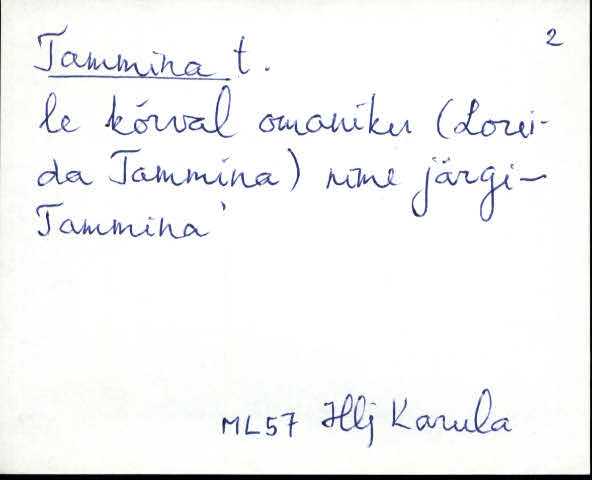 2
Tammina t.
le kõrval omaniku (Lorei-
da Tammina) nime järgi-
Tammina'
ML57 Hlj Karula